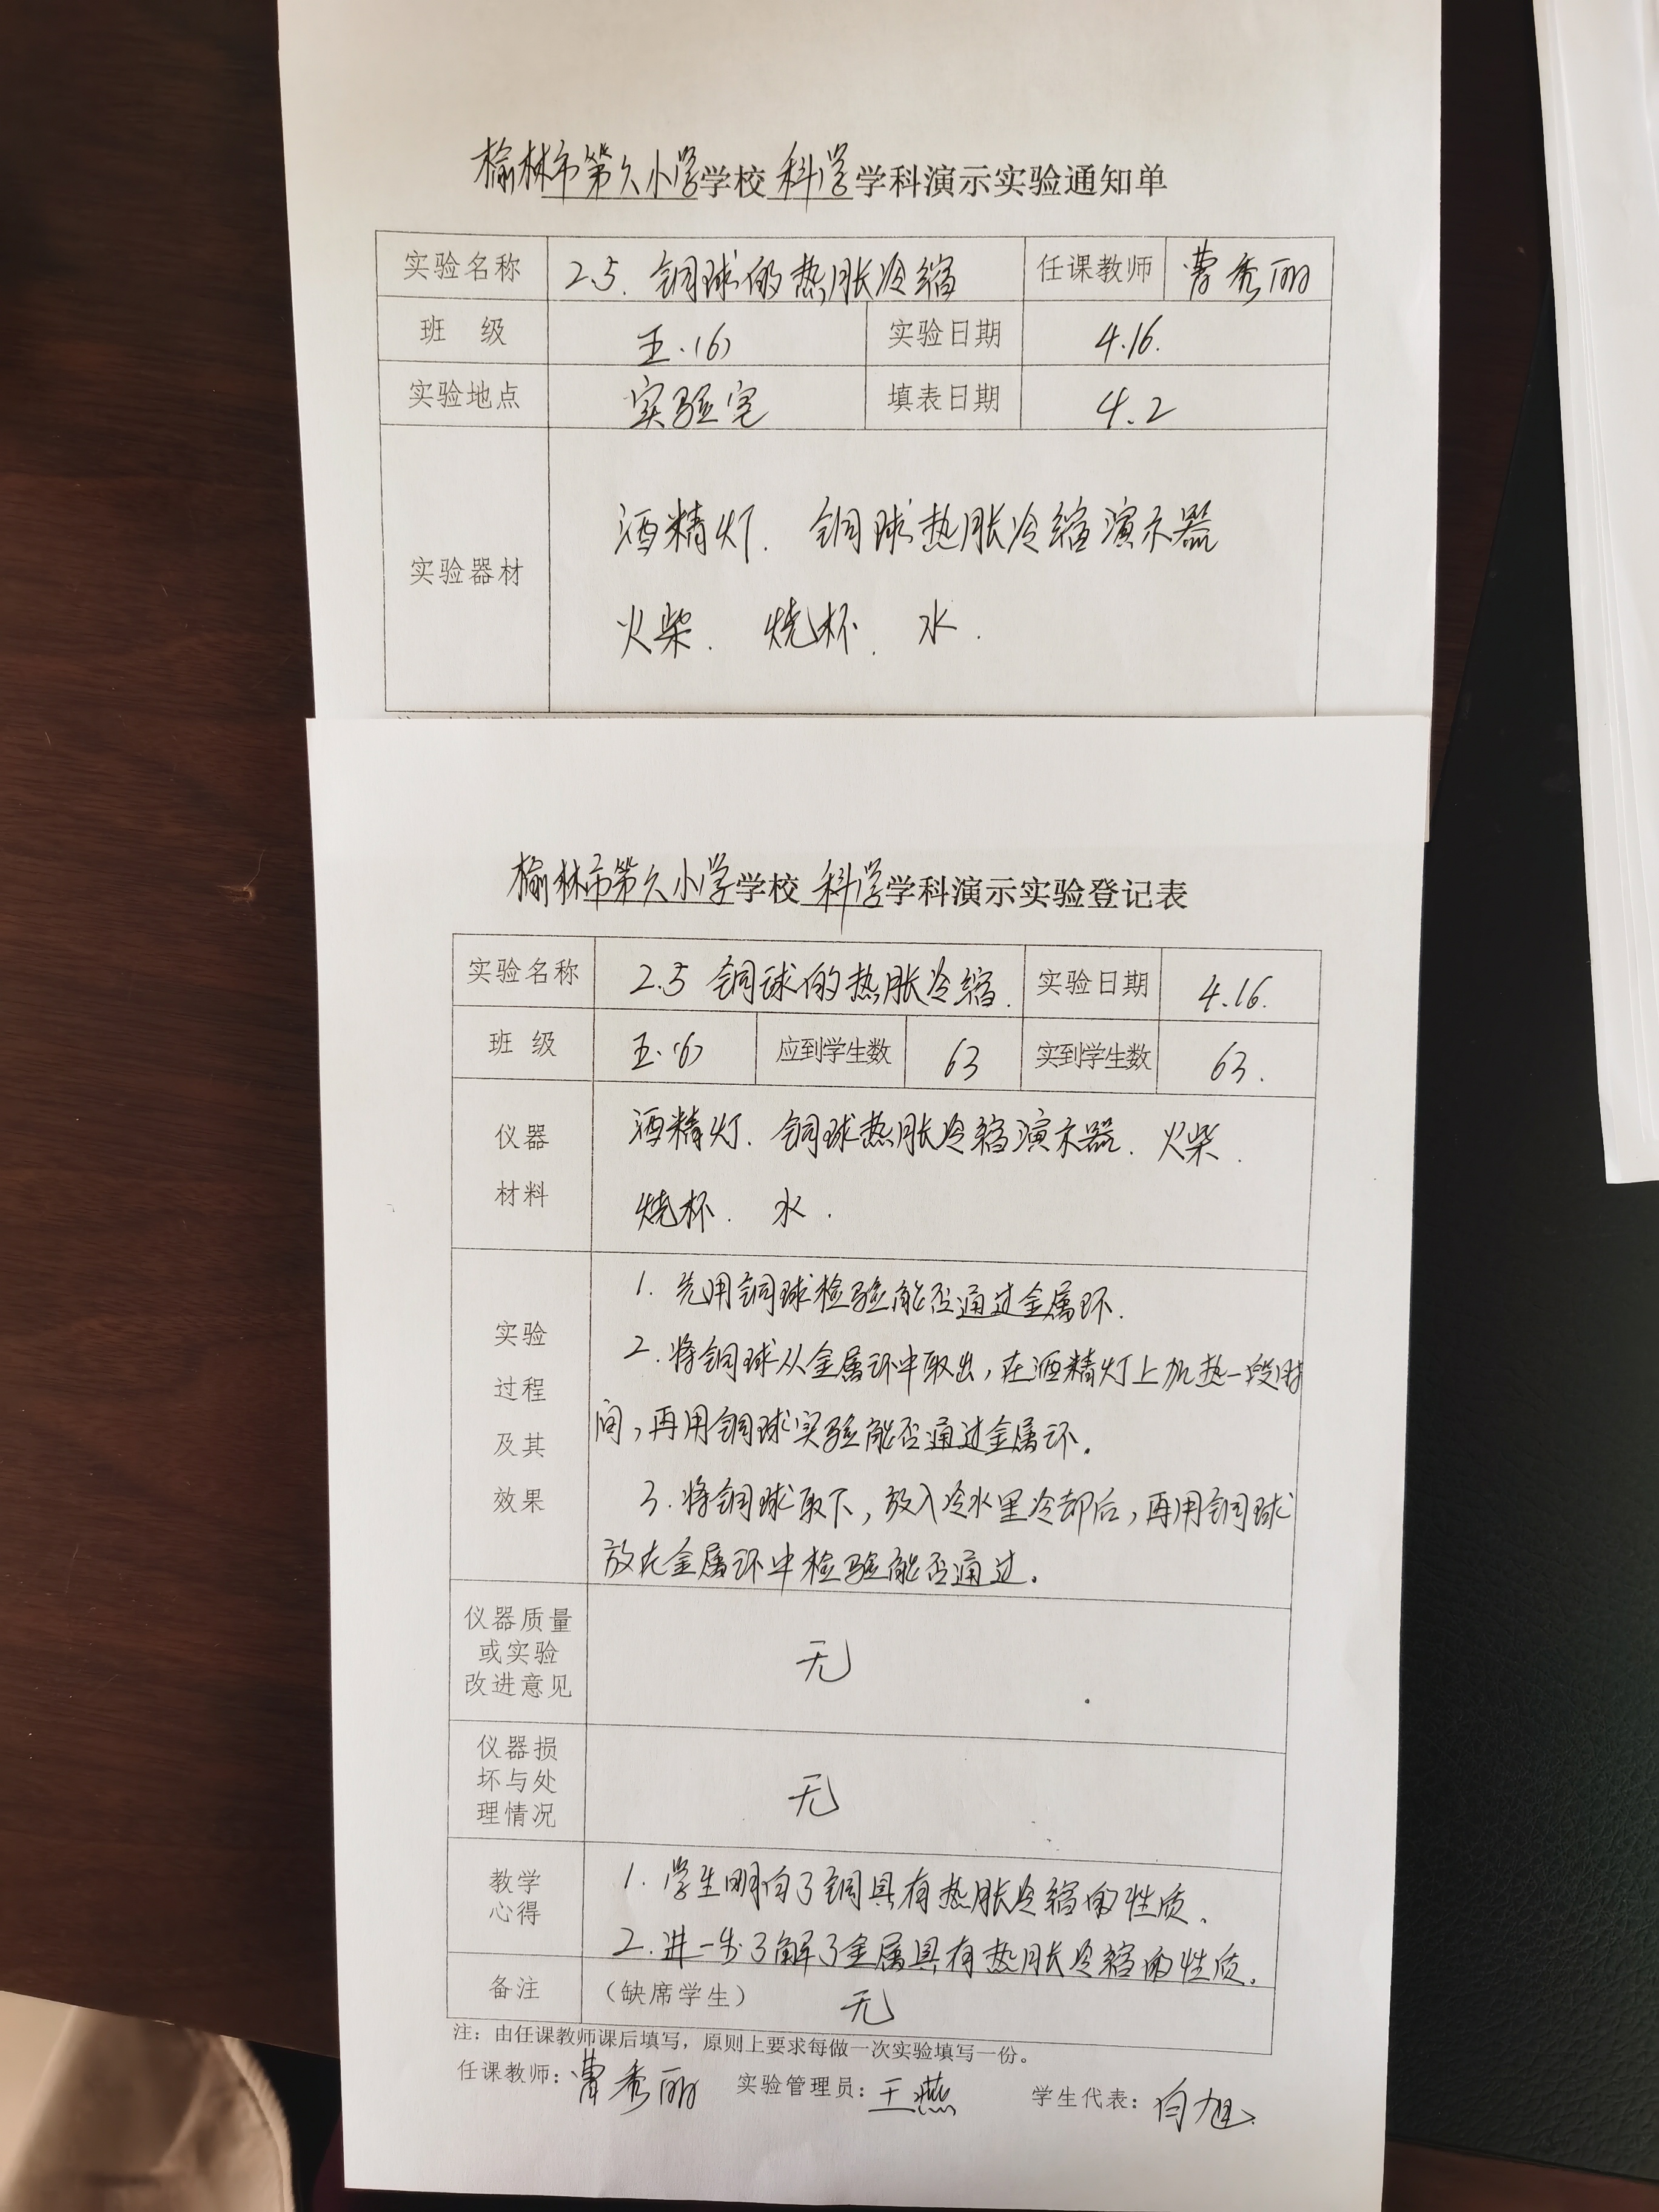 榆林市第九小学学校 科学学科演示实验通知单
实验名称 2.5. 铜球的热胀冷缩 任课教师 曹秀丽
班 级 五.(6) 实验日期 4.16.
实验地点 实验室 填表日期 4.2
实验器材 酒精灯. 铜球热胀冷缩演示器
火柴. 烧杯. 水.
榆林市第九小学学校 科学学科演示实验登记表
实验名称 2.5 铜球的热胀冷缩. 实验日期 4.16.
班 级 五.(6) 应到学生数 63 实到学生数 63.
仪器 酒精灯. 铜球热胀冷缩演示器. 火柴.
材料 烧杯. 水.
实验
过程
及其
效果
1. 先用铜球检验能否通过金属环.
2. 将铜球从金属环中取出,在酒精灯上加热一段时
间,再用铜球实验能否通过金属环.
3. 将铜球取下,放入冷水里冷却后,再用铜球
放在金属环中检验能否通过.
仪器质量
或实验
改进意见
无
仪器损
坏与处
理情况
无
教学
心得
1. 学生明白了铜具有热胀冷缩的性质.
2. 进一步了解了金属具有热胀冷缩的性质.
备注 (缺席学生) 无
注:由任课教师课后填写,原则上要求每做一次实验填写一份。
任课教师:曹秀丽 实验管理员:王燕 学生代表:白旭